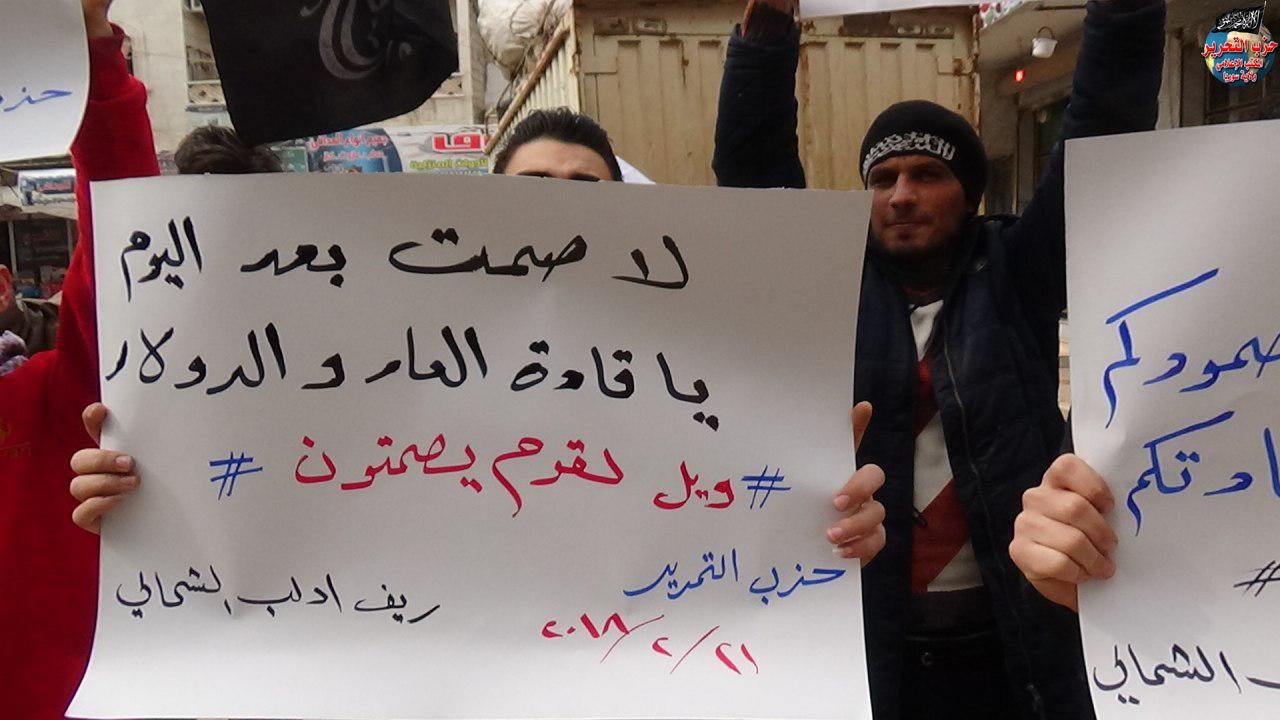 لا صمت بعد اليوم
يا قادة العار و الدولار
#ويل لقوم يصمتون#
حزب التحرير
٢١/٢/٢٠١٨
ريف ادلب الشمالي
صمودكم
#
الشمالي
حزب التحرير
المكتب الإعلامي
ولاية سوريا